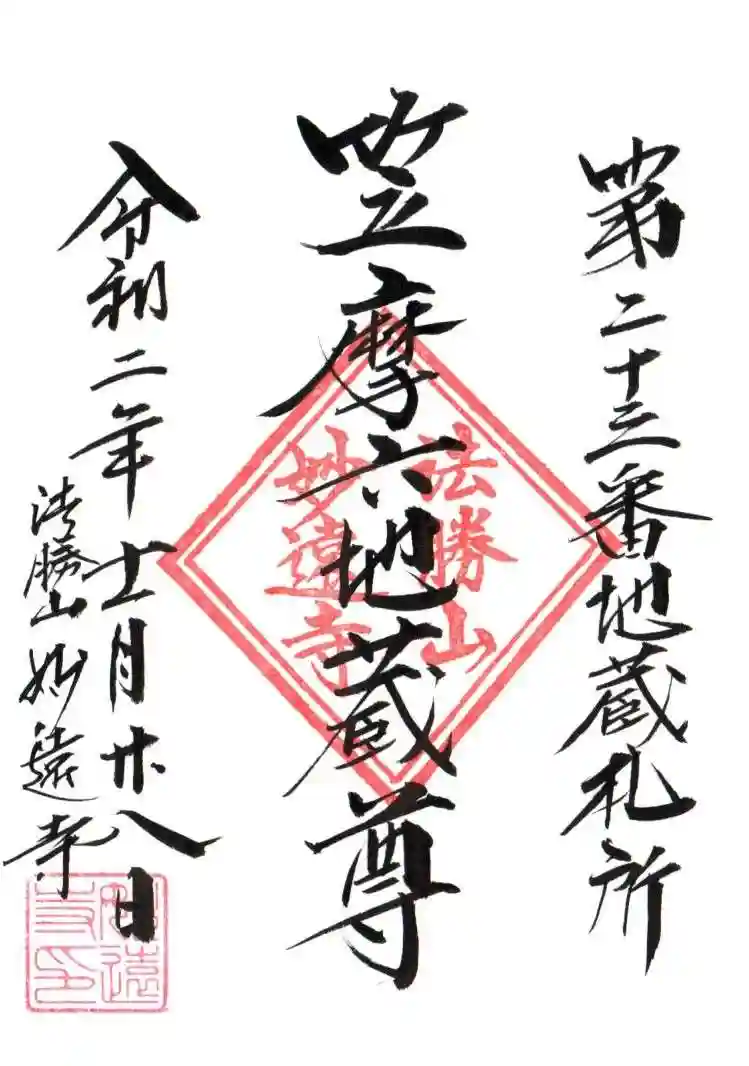 第二十三番地蔵札所
笠摩六地蔵尊
法勝山
妙遠寺
令和二年十一月廿八日
法勝山妙遠寺
妙遠寺印